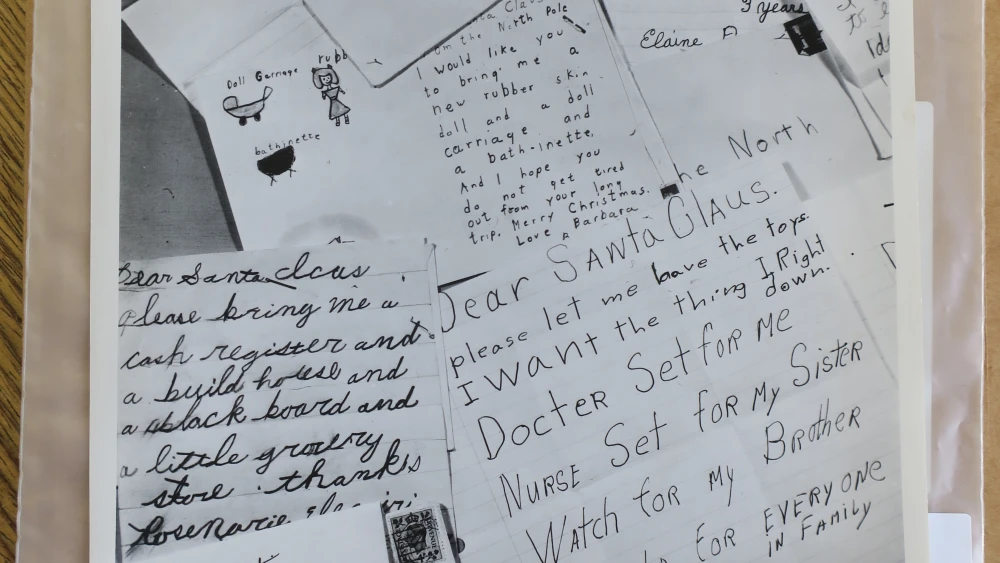 Doll Carriage
rubb
bathinette
om the North Pole
I would like you
to bring me a
new rubber skin
doll and a doll
carriage and
a bath-inette,
And I hope you
do not get tired
out from your long
trip. Merry Christmas.
Love Barbara
9 years
Elaine
Dear Santa Claus
please bring me a
cash register and
a build house and
a black board and
a little grocery
store. thanks
Rosemarie
he North
Dear SANTA CLAUS.
please let me leave the toys.
I WANT the thing I Right
down.
DOCTER SET FOR ME
NURSE SET FOR MY SISTER
WATCH FOR MY BROTHER
FOR EVERY ONE
IN FAMILY